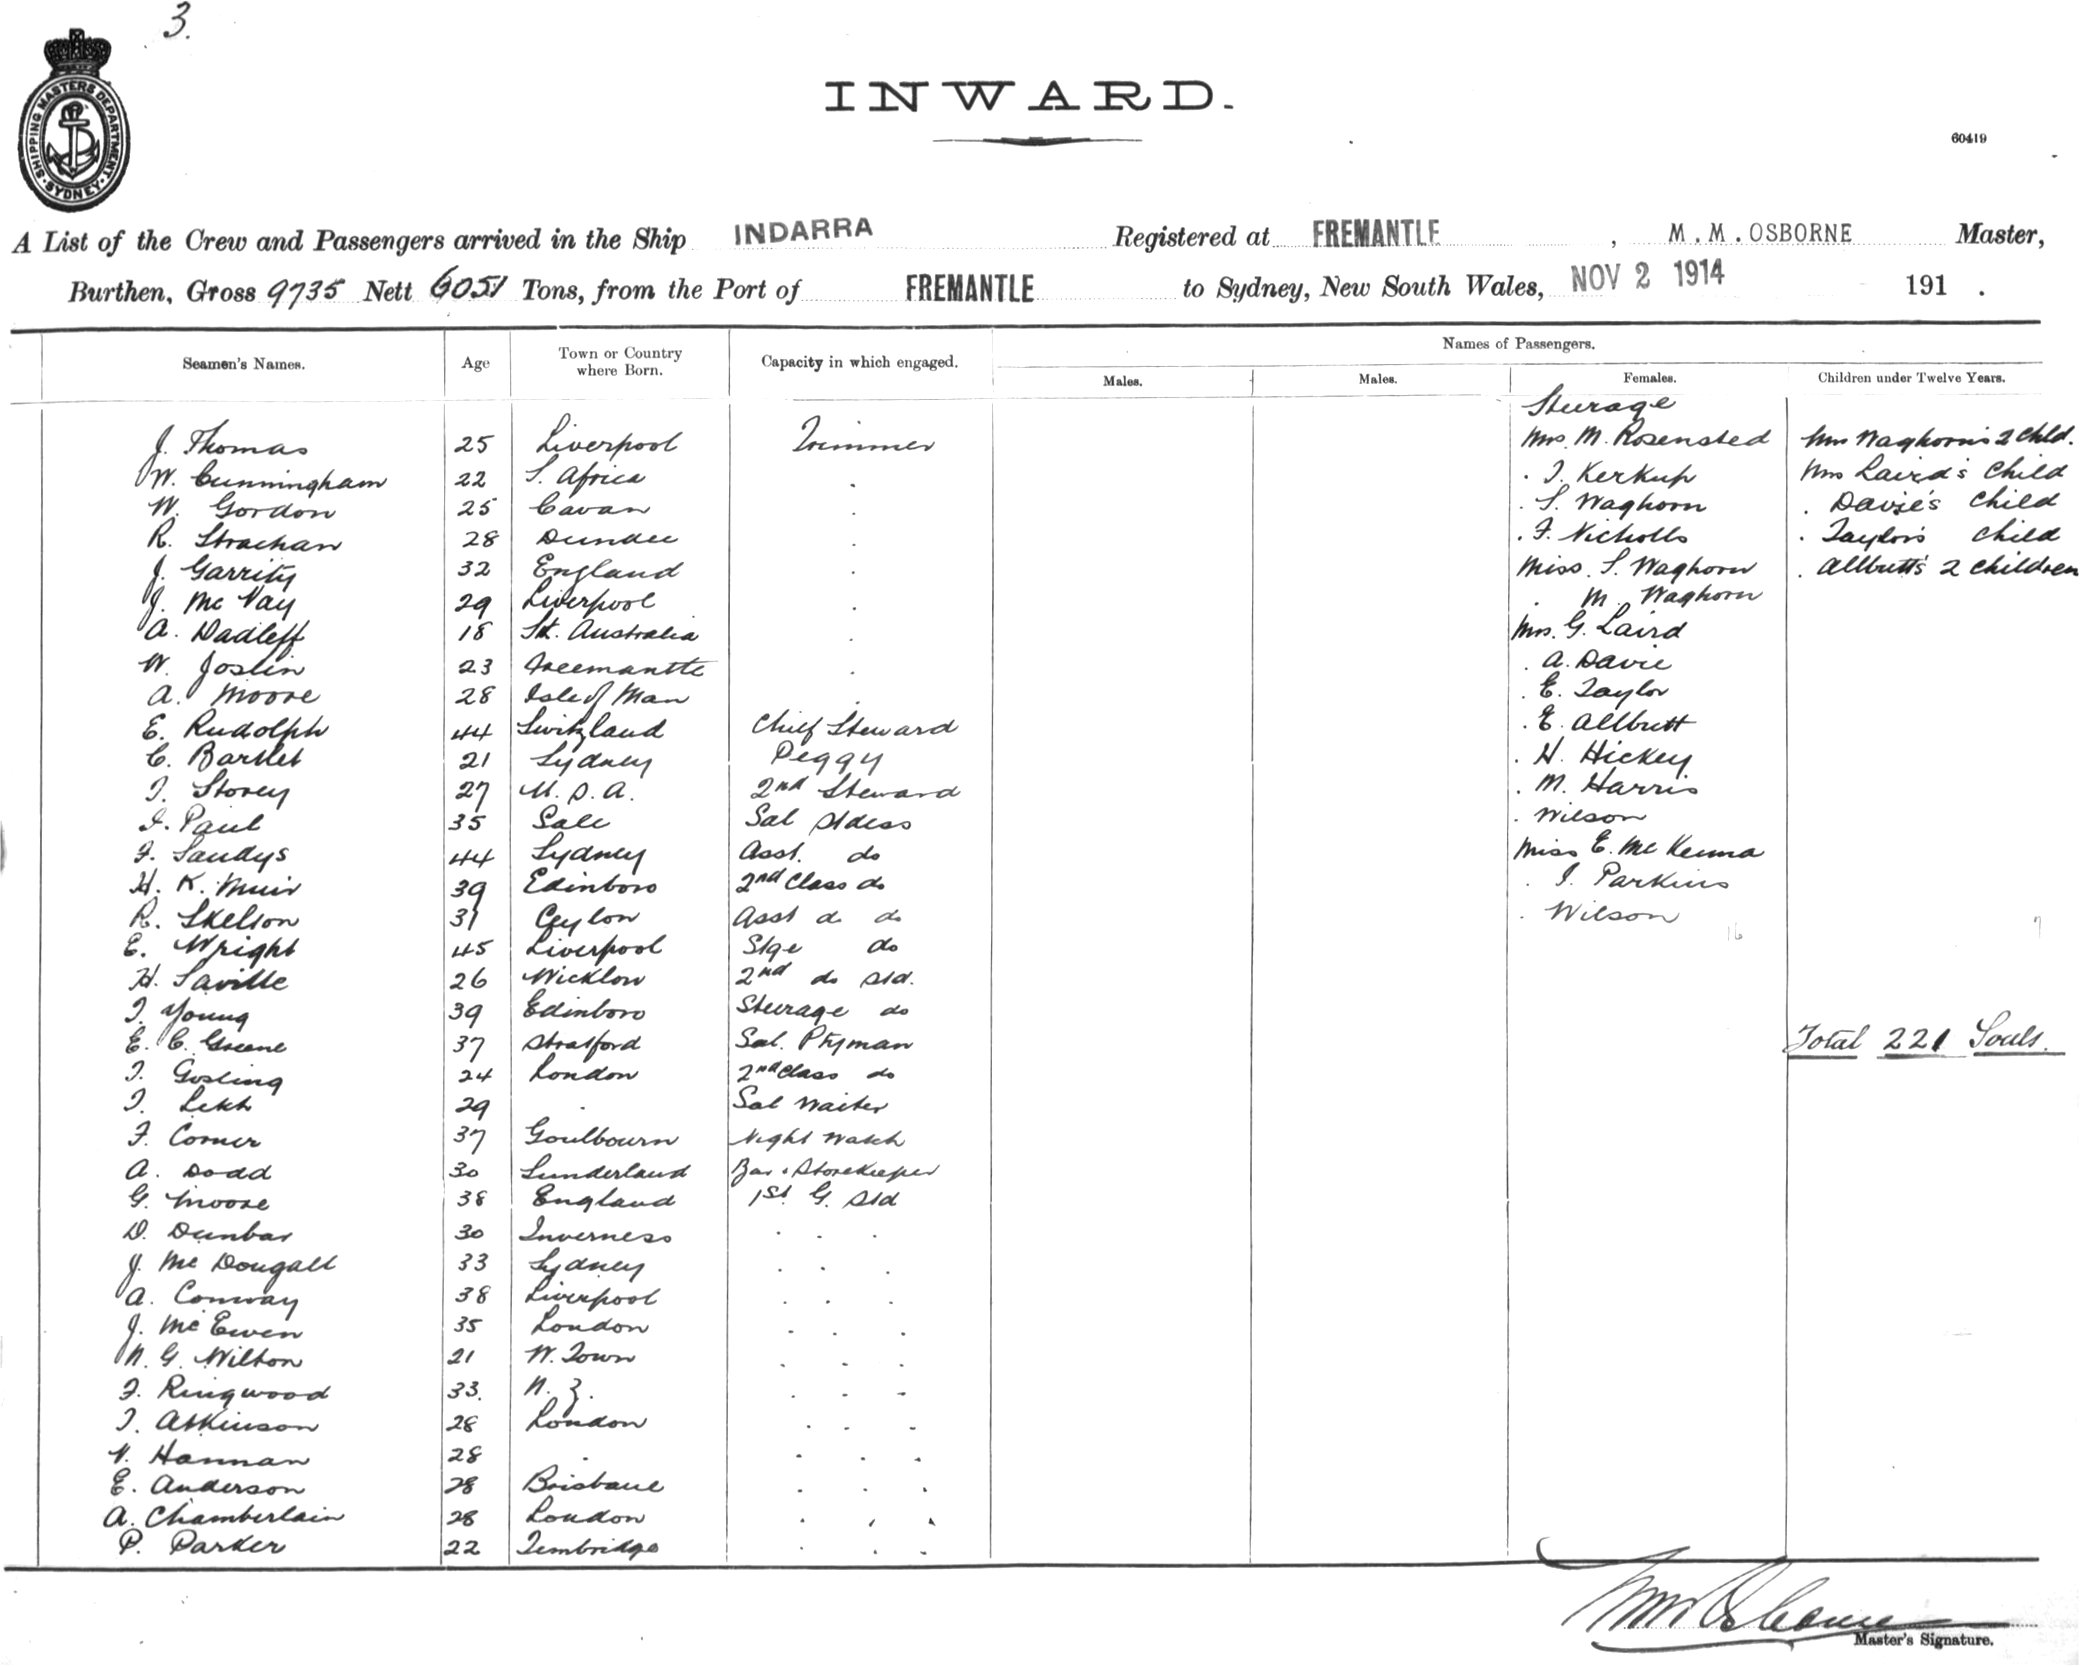 3.
SHIPPING MASTERS DEPARTMENT
SYDNEY
INWARD.
60419
A List of the Crew and Passengers arrived in the Ship INDARRA Registered at FREMANTLE, M.M. OSBORNE Master,
Burthen, Gross 9735 Nett 6051 Tons, from the Port of FREMANTLE to Sydney, New South Wales, NOV 2 1914 191 .
Names of Passengers.
Seamen's Names. Age Town or Country where Born. Capacity in which engaged. Males. Males. Females. Children under Twelve Years.
Steerage
J. Thomas 25 Liverpool Trimmer Mrs. M. Rosensted Mrs Waghorn's 2 Chld.
W. Cunningham 22 S. Africa . . I. Kerkup Mrs Laird's Child
W. Gordon 25 Cavan . . S. Waghorn . Davie's Child
R. Strachan 28 Dundee . . F. Nicholls . Taylor's Child
J. Garrity 32 England . Miss. S. Waghorn . Allbutt's 2 Children
J. Mc Vay 29 Liverpool . . M. Waghorn
A. Dadleff 18 Sth. Australia . Mrs. G. Laird
W. Joslin 23 Freemantle . . A. Davie
A. Moore 28 Isle of Man . . E. Taylor
E. Rudolph 44 Switzland Chief Steward . E. Allbutt
C. Bartlet 21 Sydney Peggy . H. Hickey
T. Storey 27 U.S.A. 2nd Steward . M. Harris
I. Paul 35 Sale Sal Stdess . Wilson
F. Sandys 44 Sydney Asst. do Miss E. Mc Kenna
H. K. Muir 39 Edinboro 2nd Class do . I. Parkins
R. Skelton 31 Ceylon Asst do do . Wilson
16 7
E. Wright 45 Liverpool Stge do
H. Saville 26 Wicklow 2nd do Std.
T. Young 39 Edinboro Steerage do
E. C. Greene 37 Stratford Sal. Ptyman Total 221 Souls.
T. Gosling 24 London 2nd Class do
T. 29 . Sal Waiter
F. Corner 37 Goulbourn Night Watch
A. Dodd 30 Sunderland Bar & Storekeeper
G. Moore 38 England 1st. G. Std
D. Dunbar 30 Inverness . . .
J. Mc Dougall 33 Sydney . . .
A. Conway 38 Liverpool . . .
J. Mc Ewen 35 London . . .
N. G. Wilton 21 W. Town . . .
F. Ringwood 33. N. Z. . . .
T. Atkinson 28 London . . .
V. Hannan 28 . . . .
E. Anderson 28 Brisbane . . .
A. Chamberlain 28 London . . .
P. Parker 22 Tembridge . . .
MM Osborne
Master's Signature.